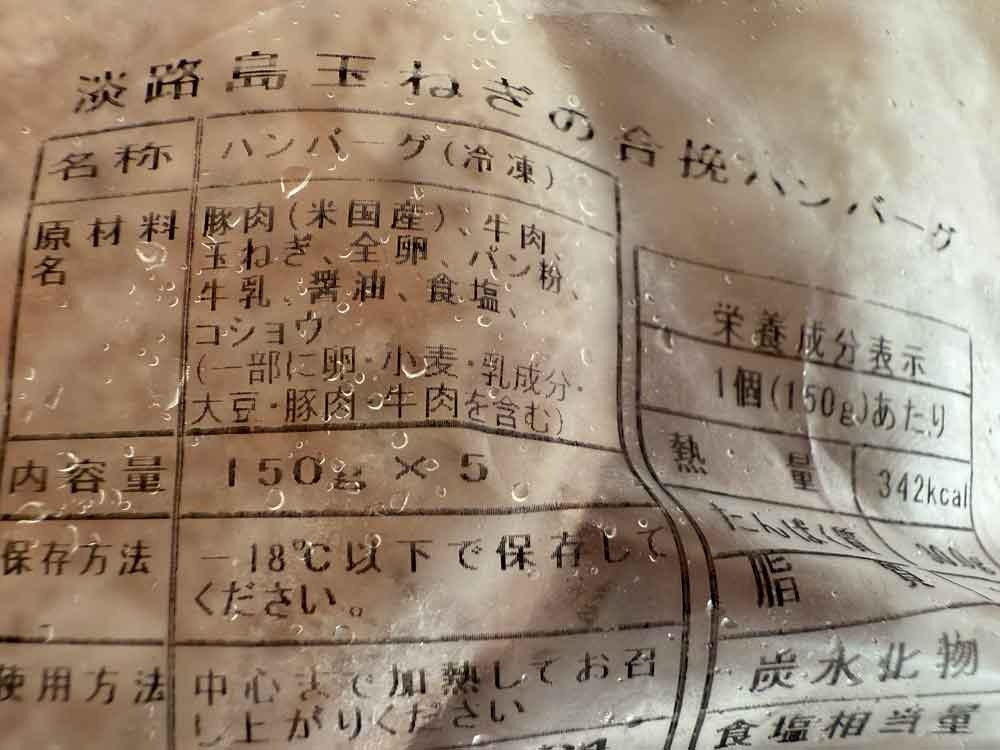 淡路島玉ねぎの合挽ハンバーグ
名称
ハンバーグ(冷凍)
原材料名
豚肉(米国産)、牛肉、
玉ねぎ、全卵、パン粉、
牛乳、醤油、食塩、
コショウ
(一部に卵・小麦・乳成分・
大豆・豚肉・牛肉を含む)
内容量
150g×5
保存方法
-18℃以下で保存して
ください。
使用方法
中心まで加熱してお召
し上がりください
栄養成分表示
1個(150g)あたり
熱量
342kcal
たんぱく質
脂質
炭水化物
食塩相当量